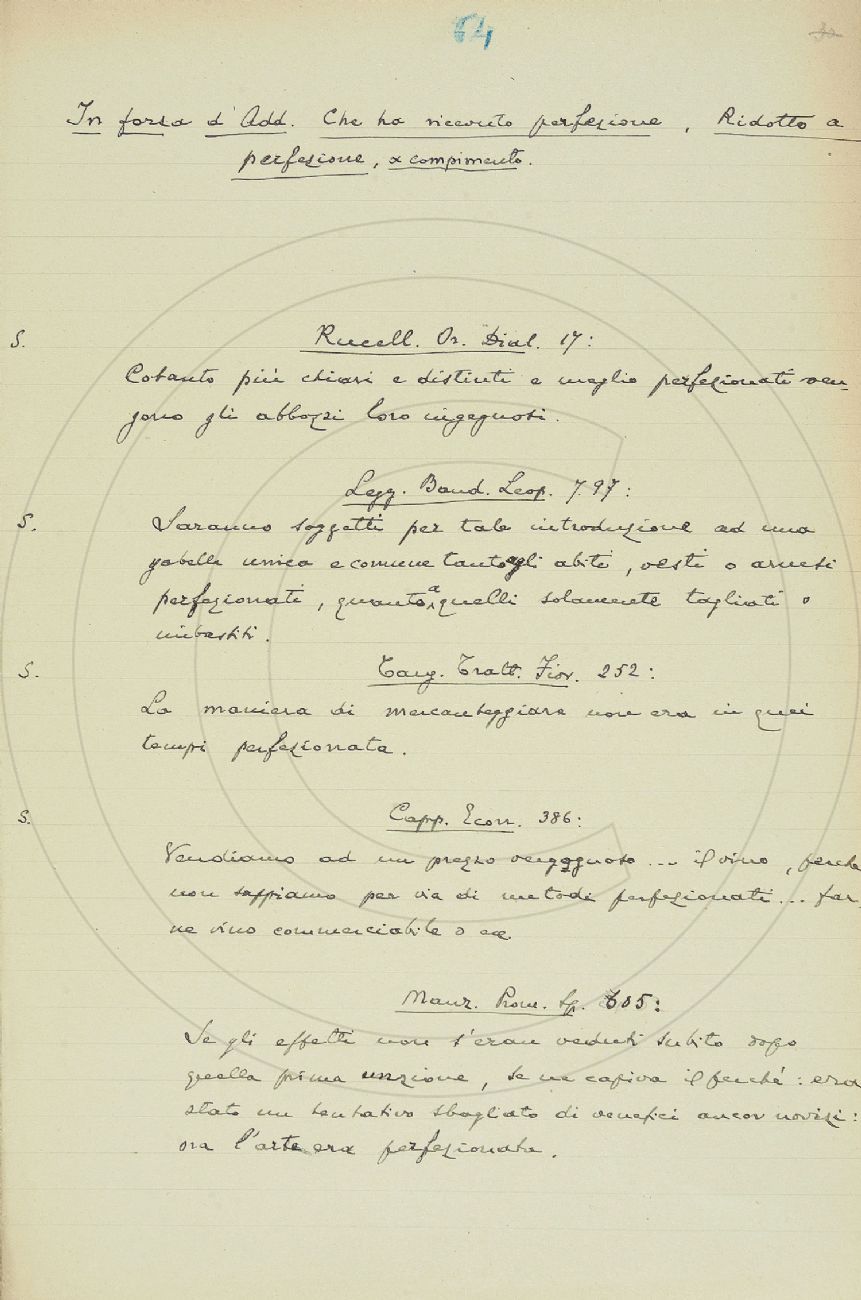 64
In forza d'Add. Che ha ricevuto perfezione, Ridotto a
perfezione, a compimento.
S. Rucell. Or. Dial. 17:
Cotanto più chiari e distinti e meglio perfezionati ven-
gono gli abbozzi loro ingegnosi.
Legg. Band. Leop. 7. 97:
S. Saranno soggetti per tale introduzione ad una
gabella unica e comune tanto agli abiti, vesti o arnesi
perfezionati, quanto a quelli solamente tagliati o
imbastiti.
S. Targ. Tratt. Fior. 252:
La maniera di mercanteggiare non era in quei
tempi perfezionata.
S. Capp. Econ. 386:
Vendiamo ad un prezzo vergognoso ... il vino, perchè
non sappiamo per via di metodi perfezionati ... far
ne vino commerciabile
Manz. Prom. Sp. 605:
Se gli effetti non s'eran veduti subito dopo
quella prima unzione, se ne capiva il perché: era
stato un tentativo sbagliato di venefici ancor novizi:
ora l'arte era perfezionata.